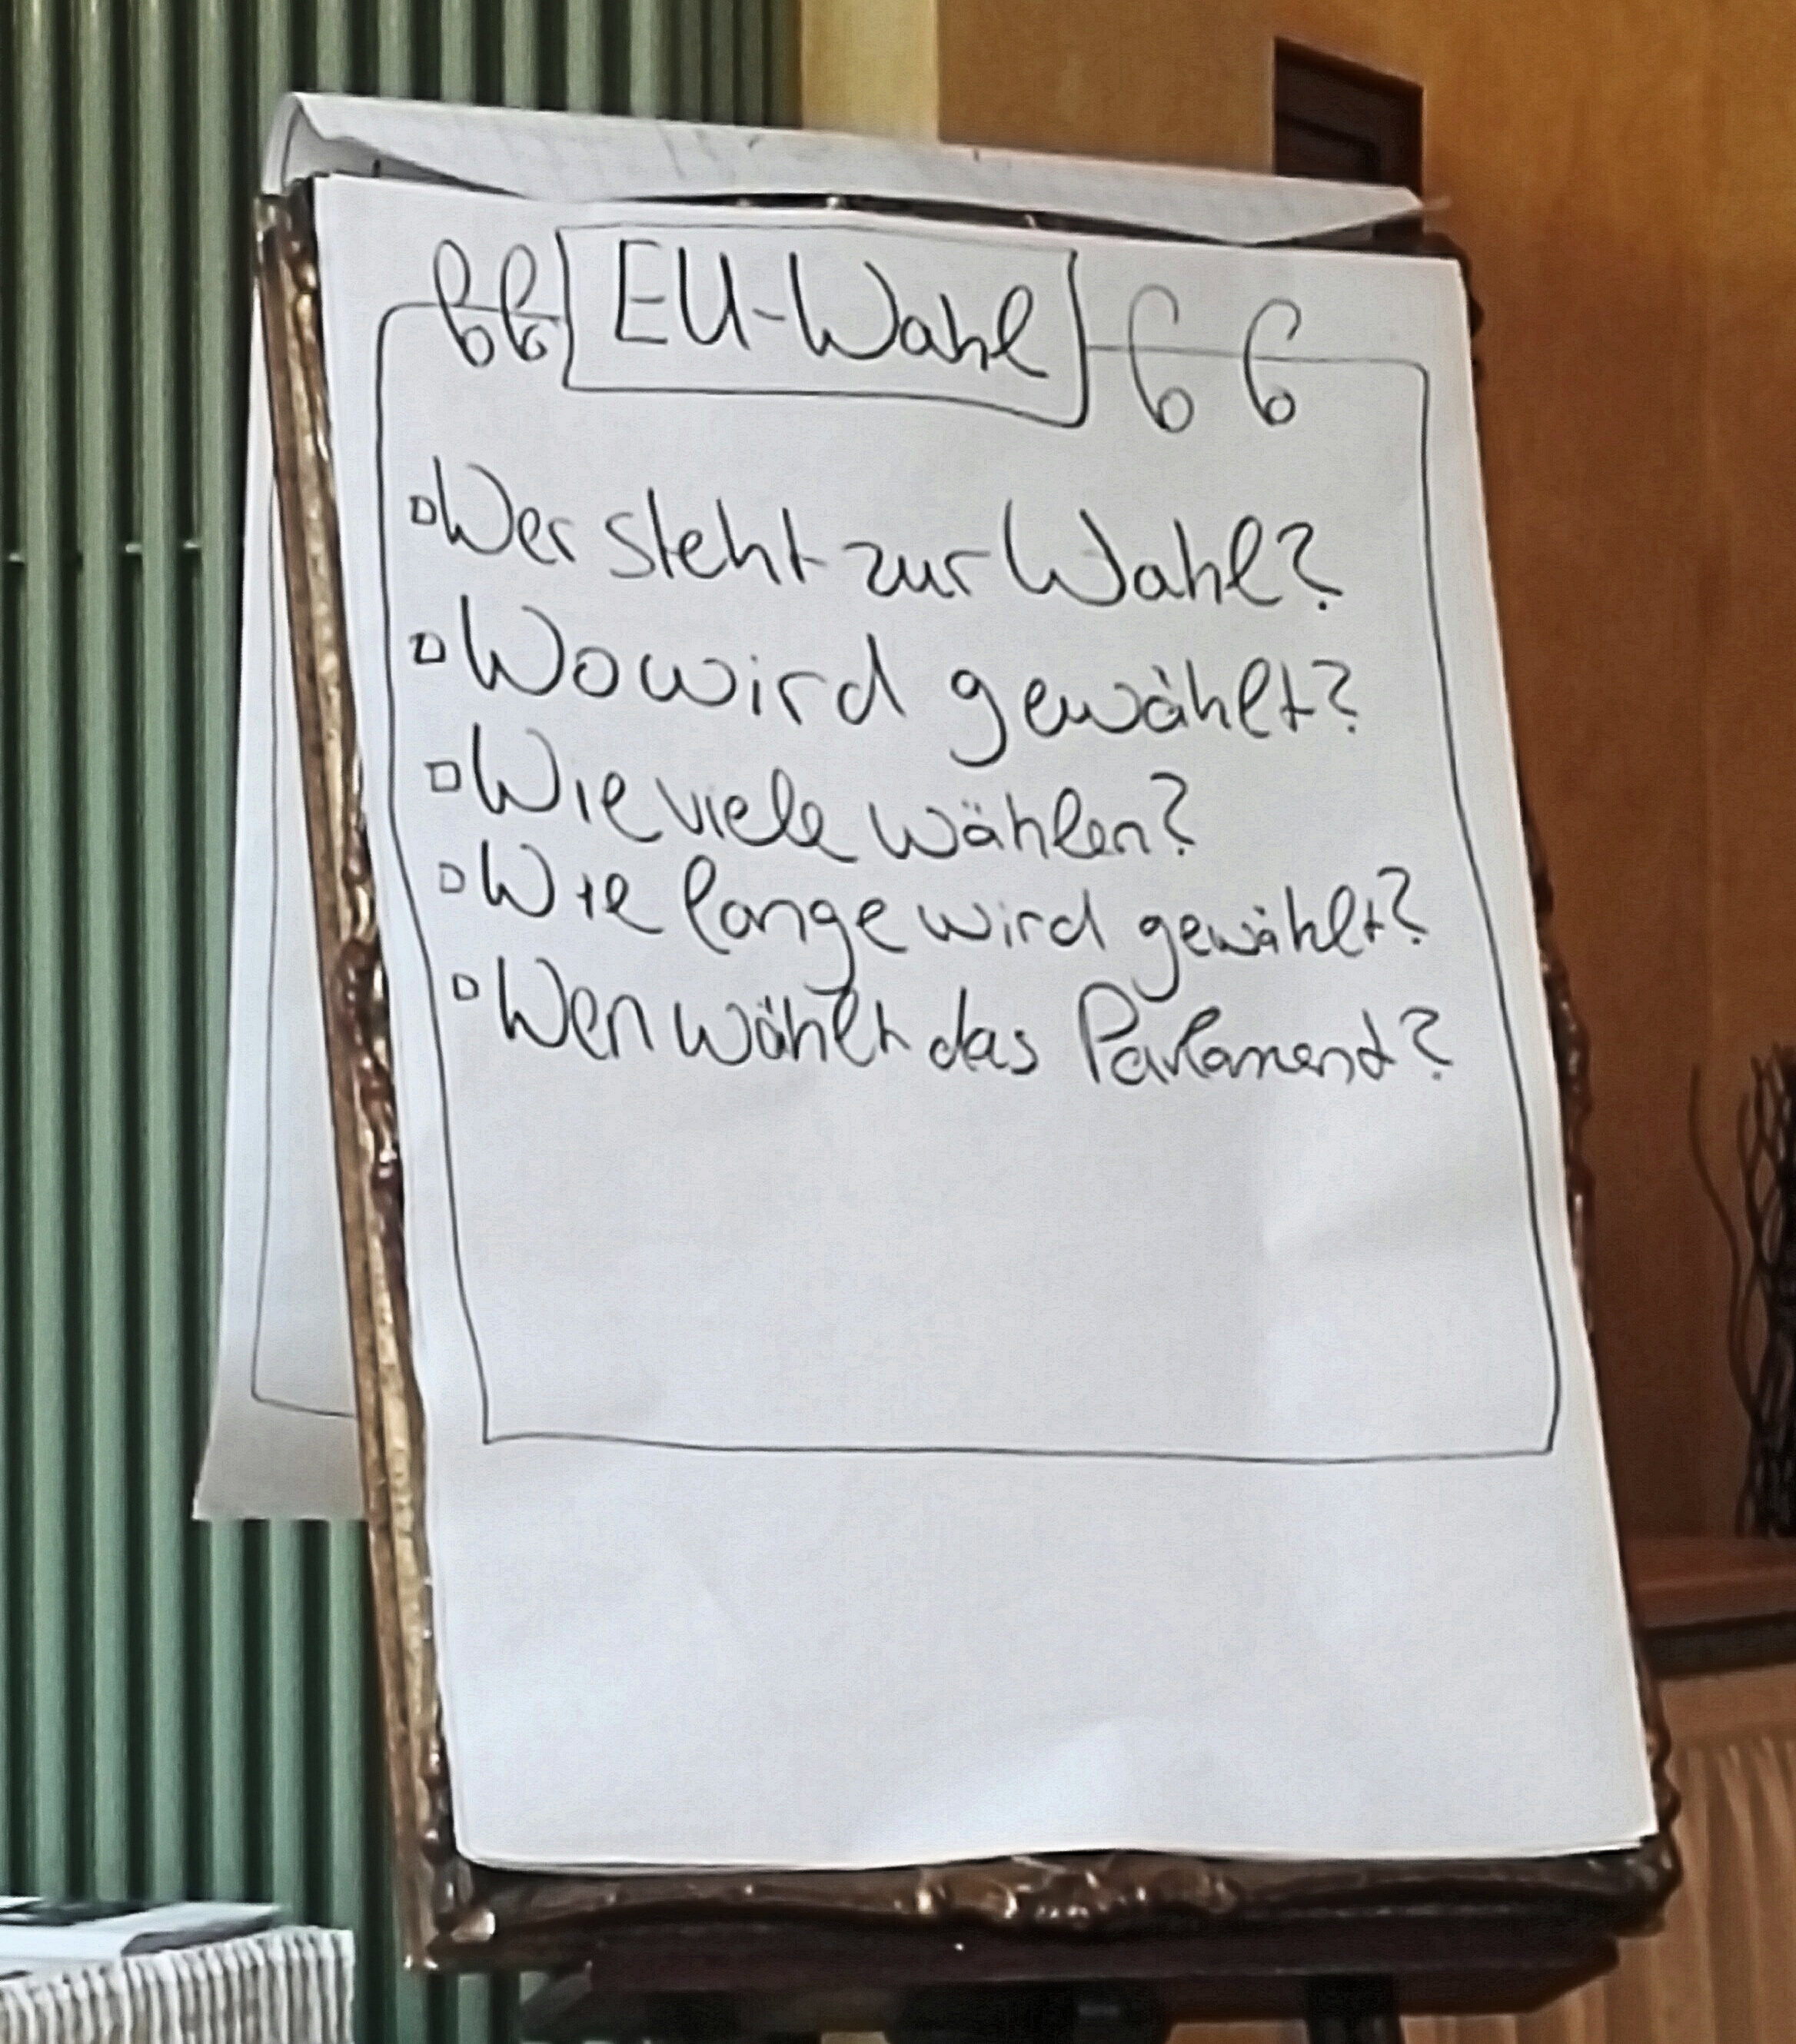 EU-Wahl
Wer steht zur Wahl?
Wo wird gewählt?
Wie viele wählen?
Wie lange wird gewählt?
Wen wählt das Parlament?